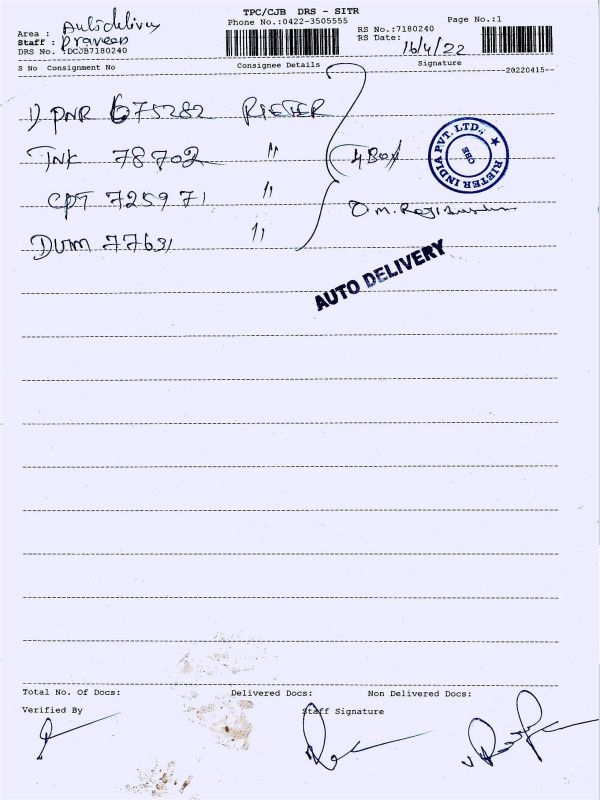 TPC/CJB DRS - SITR
Phone No.:0422-3505555
Page No.:1
Area : Autodelivey
Staff : Praveen
DRS No. :DCJB7180240
RS No.:7180240
RS Date: 16/4/22
S No Consignment No Consignee Details Signature
20220415
1) PNR 675282 RIETER
TNK 78702 "
4 Box
CPT 725971 "
DUM 77631 "
RIETER INDIA PVT. LTD.,
CBE
AUTO DELIVERY
Total No. Of Docs: Delivered Docs: Non Delivered Docs:
Verified By Staff Signature